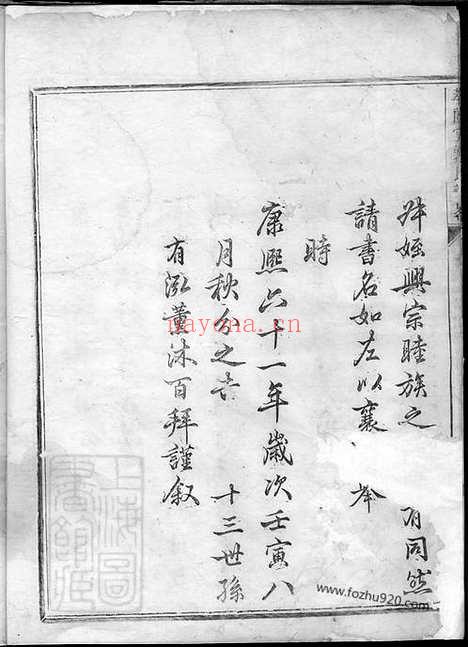 姪興宗睦族之 有同然
請書名如左以襄 举
時
康熙六十一年歲次壬寅八
月秋分之吉 十三世孫
有泓薰沐百拜謹叙
上海圖書館藏
nayona.cn
www.fozhu920.com